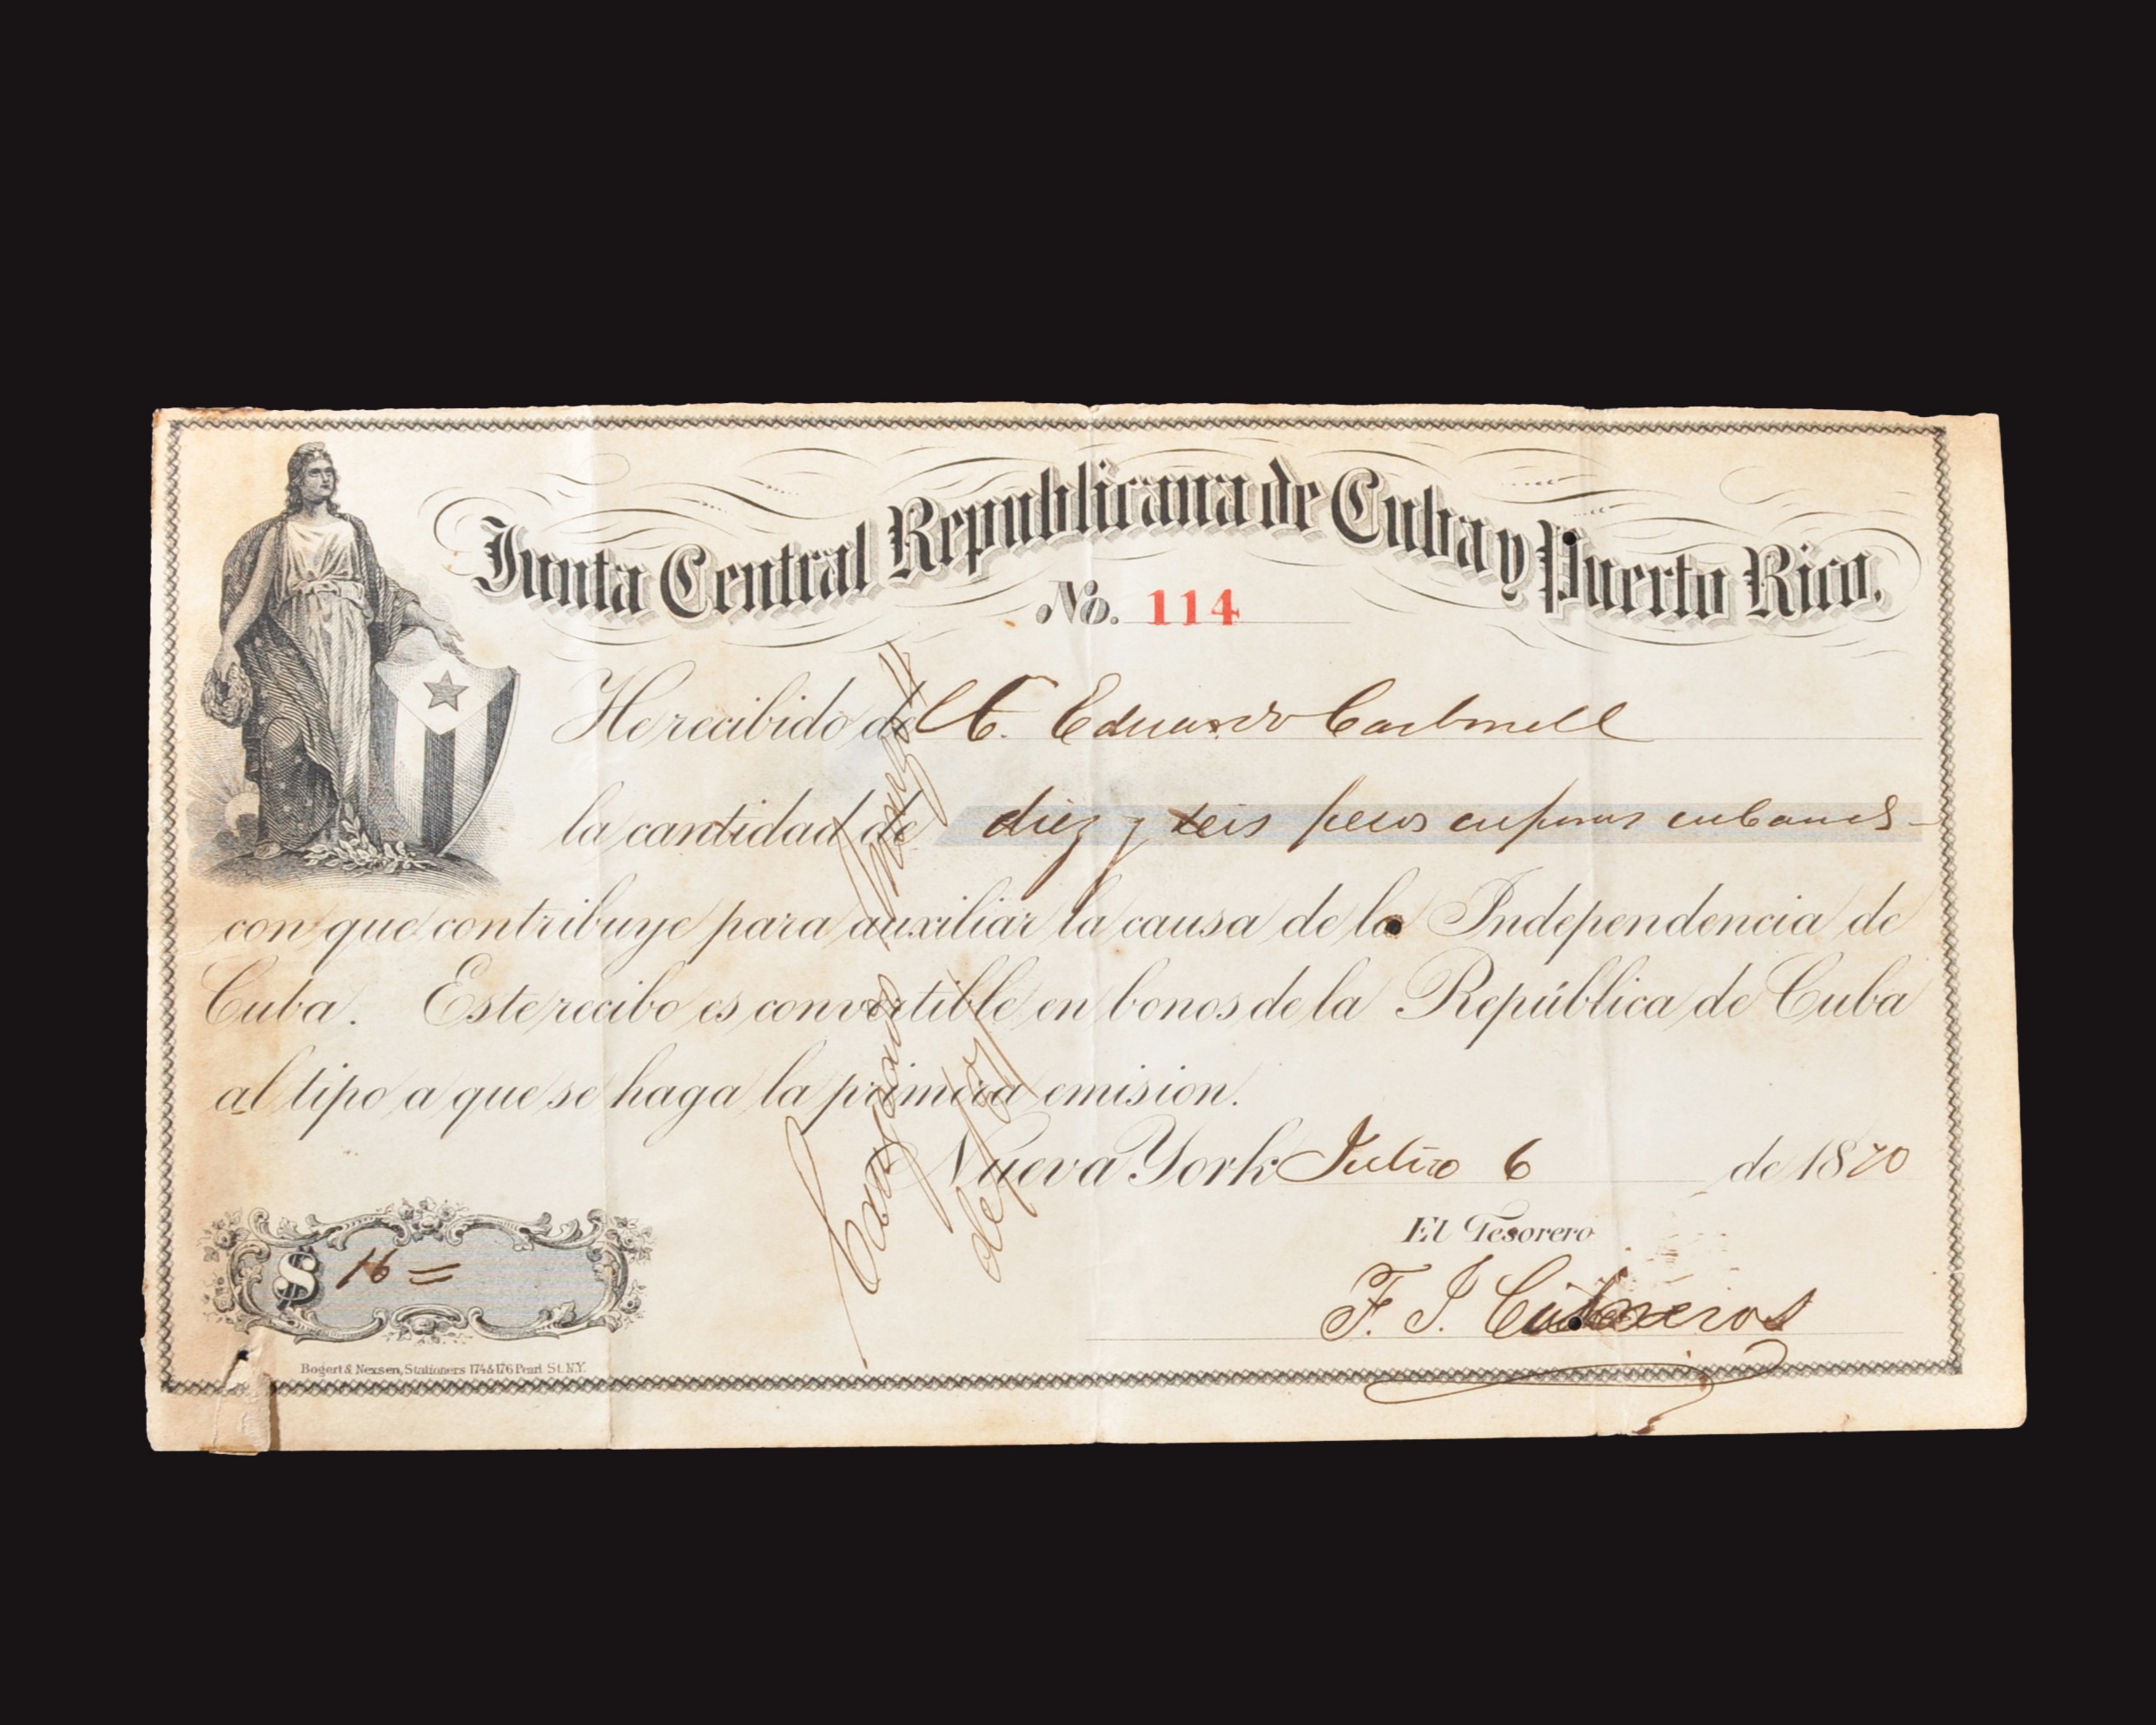 Junta Central Republicana de Cuba y Puerto Rico.
No. 114
He recibido del C. Eduardo Carbonell
la cantidad de diez y seis pesos cubanos
con que contribuye para auxiliar la causa de la Independencia de
Cuba. Este recibo es convertible en bonos de la República de Cuba
al tipo a que se haga la primera emision.
Nueva York Julio 6 de 1870
El Tesorero
$ 16 =
F. J. Cisneros
Bogert & Nexsen, Stationers 174 & 176 Pearl St. N.Y.